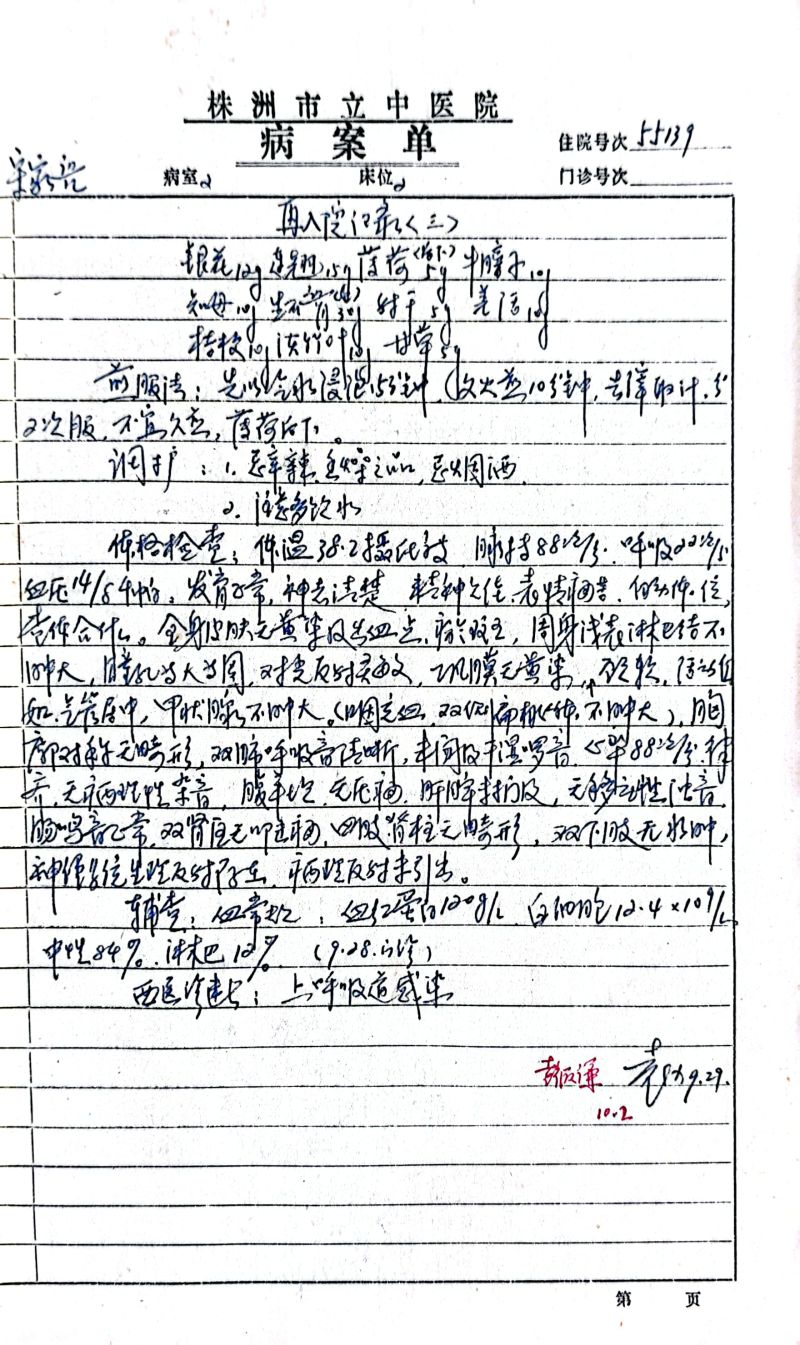 株洲市立中医院
病案单
住院号次 55139
病室2 床位2 门诊号次
再入院记录(三)
银花12g 连翘15g 薄荷(后下)5g 牛膝子10g
知母10g 生石膏30g 射干5g 10g
桔梗10g 淡竹叶10g 甘草5g
煎服法：先以冷水浸泡15分钟，文火煎10分钟，去滓取汁，分
2次服，不宜久煎，薄荷后下。
调护：1.忌辛辣、之品，忌烟酒
2.注意多饮水
体格检查：体温38.2摄氏度 脉搏88次/分 呼吸22次/分
血压14/8千帕。发育正常，神志清楚 精神欠佳，表情痛苦，自动体位，
查体合作。全身皮肤无黄染及出血点，瘀斑，周身浅表淋巴结不
肿大，瞳孔等大等圆，对光反射灵敏，巩膜无黄染，颈软，活动自
如，气管居中，甲状腺不肿大。(咽充血，双侧扁桃体不肿大)，胸
廓对称无畸形，双肺呼吸音清晰，未闻及干湿啰音，心率88次/分，律
齐，无病理性杂音，腹平坦，无压痛，肝脾未扪及，无移动性浊音，
肠鸣音正常，双肾区无叩击痛，四肢脊柱无畸形，双下肢无水肿，
神经系统生理反射存在，病理反射未引出。
辅查：血常规：血红蛋白120g/L 白细胞12.4×10⁹/L
中性84% 淋巴12% (9.28.门诊)
西医诊断：上呼吸道感染
9.29.
10.2
第 页